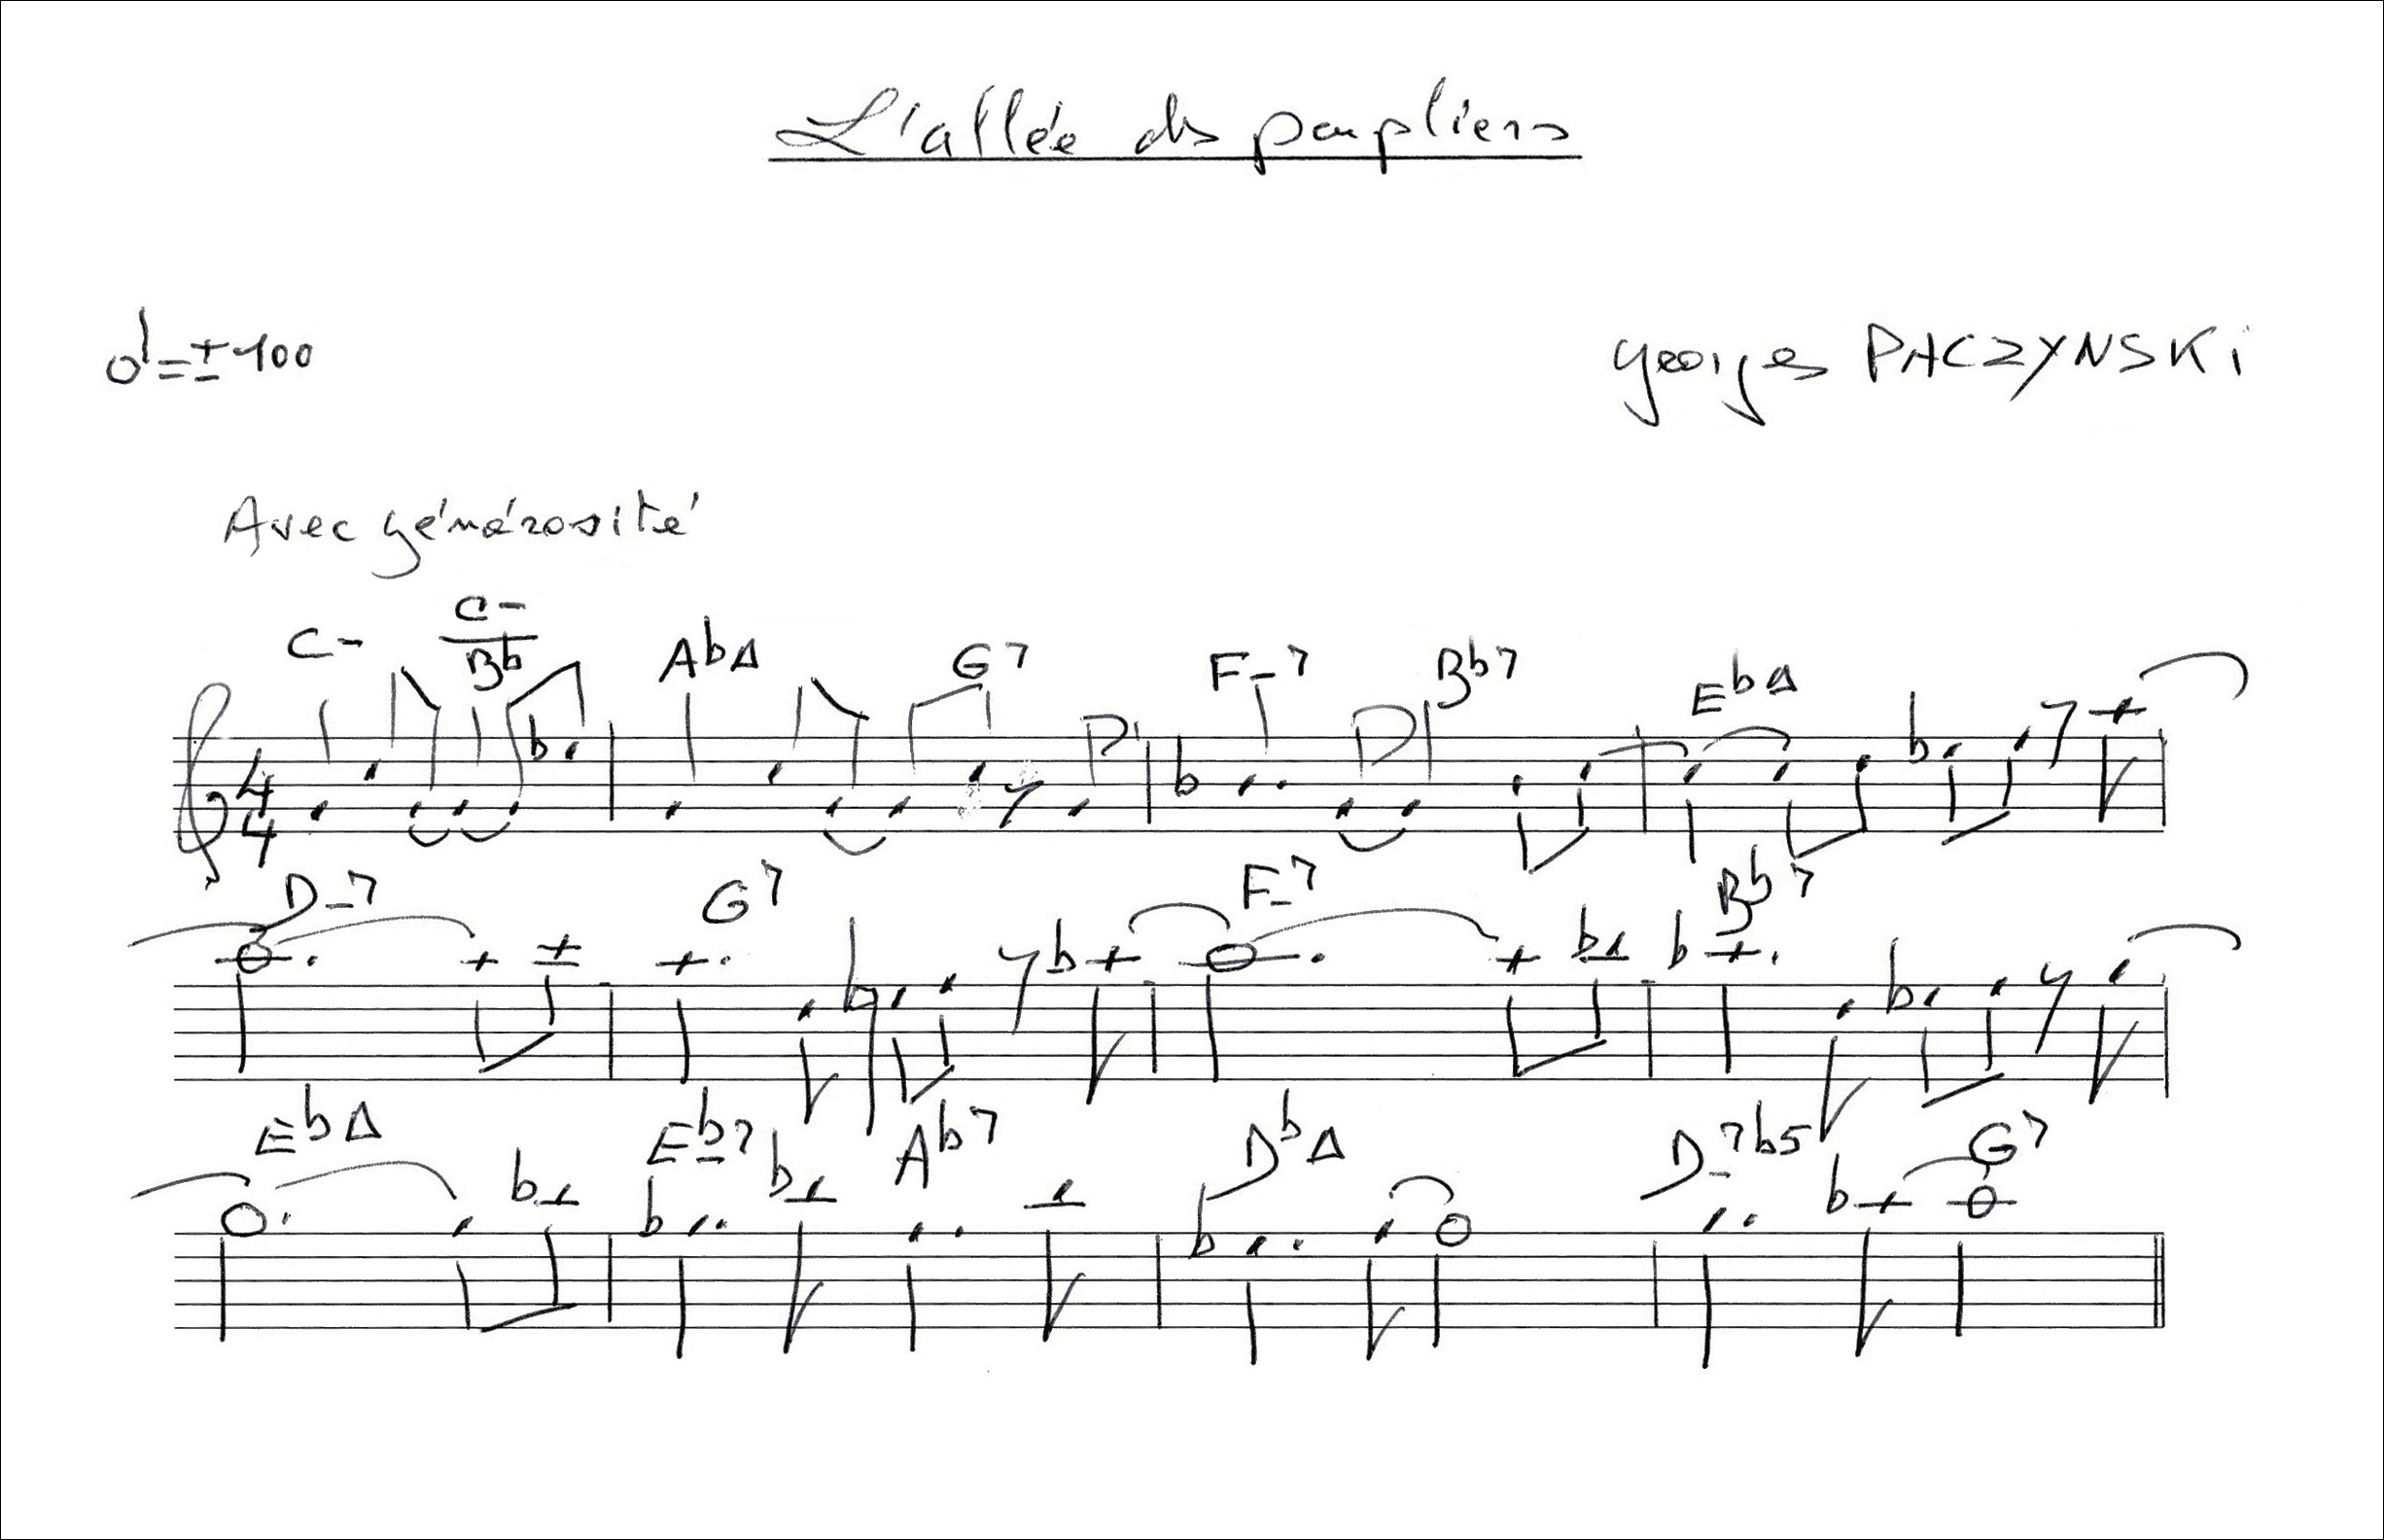 L'allée des peupliers
♩=±100 Georges PACZYNSKI
Avec générosité
C- C-/Bb AbΔ G7 F-7 Bb7 EbΔ
4/4
D-7 G7 F-7 Bb7
EbΔ Eb-7 Ab7 DbΔ D-7b5 G7